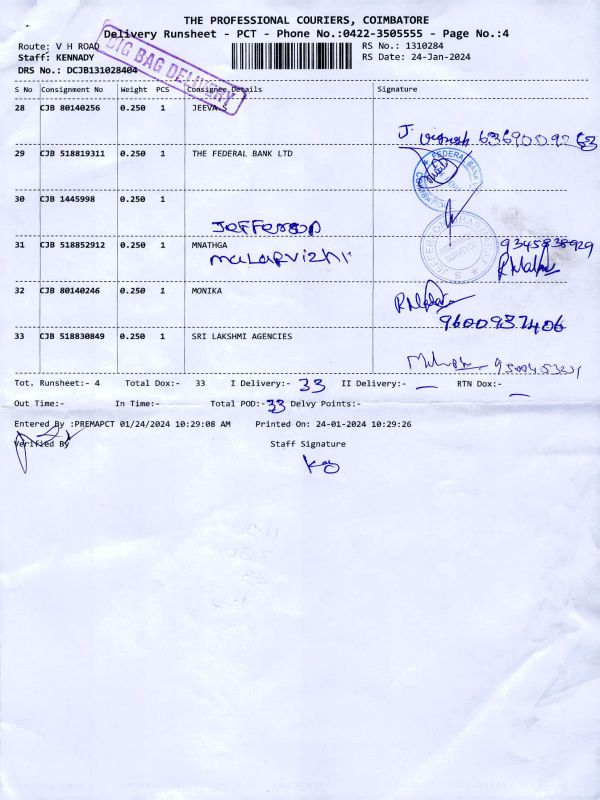 THE PROFESSIONAL COURIERS, COIMBATORE
Delivery Runsheet - PCT - Phone No.:0422-3505555 - Page No.:4
Route: V H ROAD
RS No.: 1310284
Staff: KENNADY
RS Date: 24-Jan-2024
DRS No.: DCJB131028404
BIG BAG DELIVERY
S No Consignment No Weight PCS Consignee Details Signature
28 CJB 80140256 0.250 1 JEEVA.S
J. Vignesh
29 CJB 518819311 0.250 1 THE FEDERAL BANK LTD
FEDERAL BANK
30 CJB 1445998 0.250 1
Jefferson
31 CJB 518852912 0.250 1 MNATHGA
9345838929
malarvizhi
32 CJB 80140246 0.250 1 MONIKA
9600937406
33 CJB 518830849 0.250 1 SRI LAKSHMI AGENCIES
Tot. Runsheet:- 4 Total Dox:- 33 I Delivery:- 33 II Delivery:- — RTN Dox:- —
Out Time:- In Time:- Total POD:- 33 Delvy Points:-
Entered By :PREMAPCT 01/24/2024 10:29:08 AM Printed On: 24-01-2024 10:29:26
Verified By Staff Signature